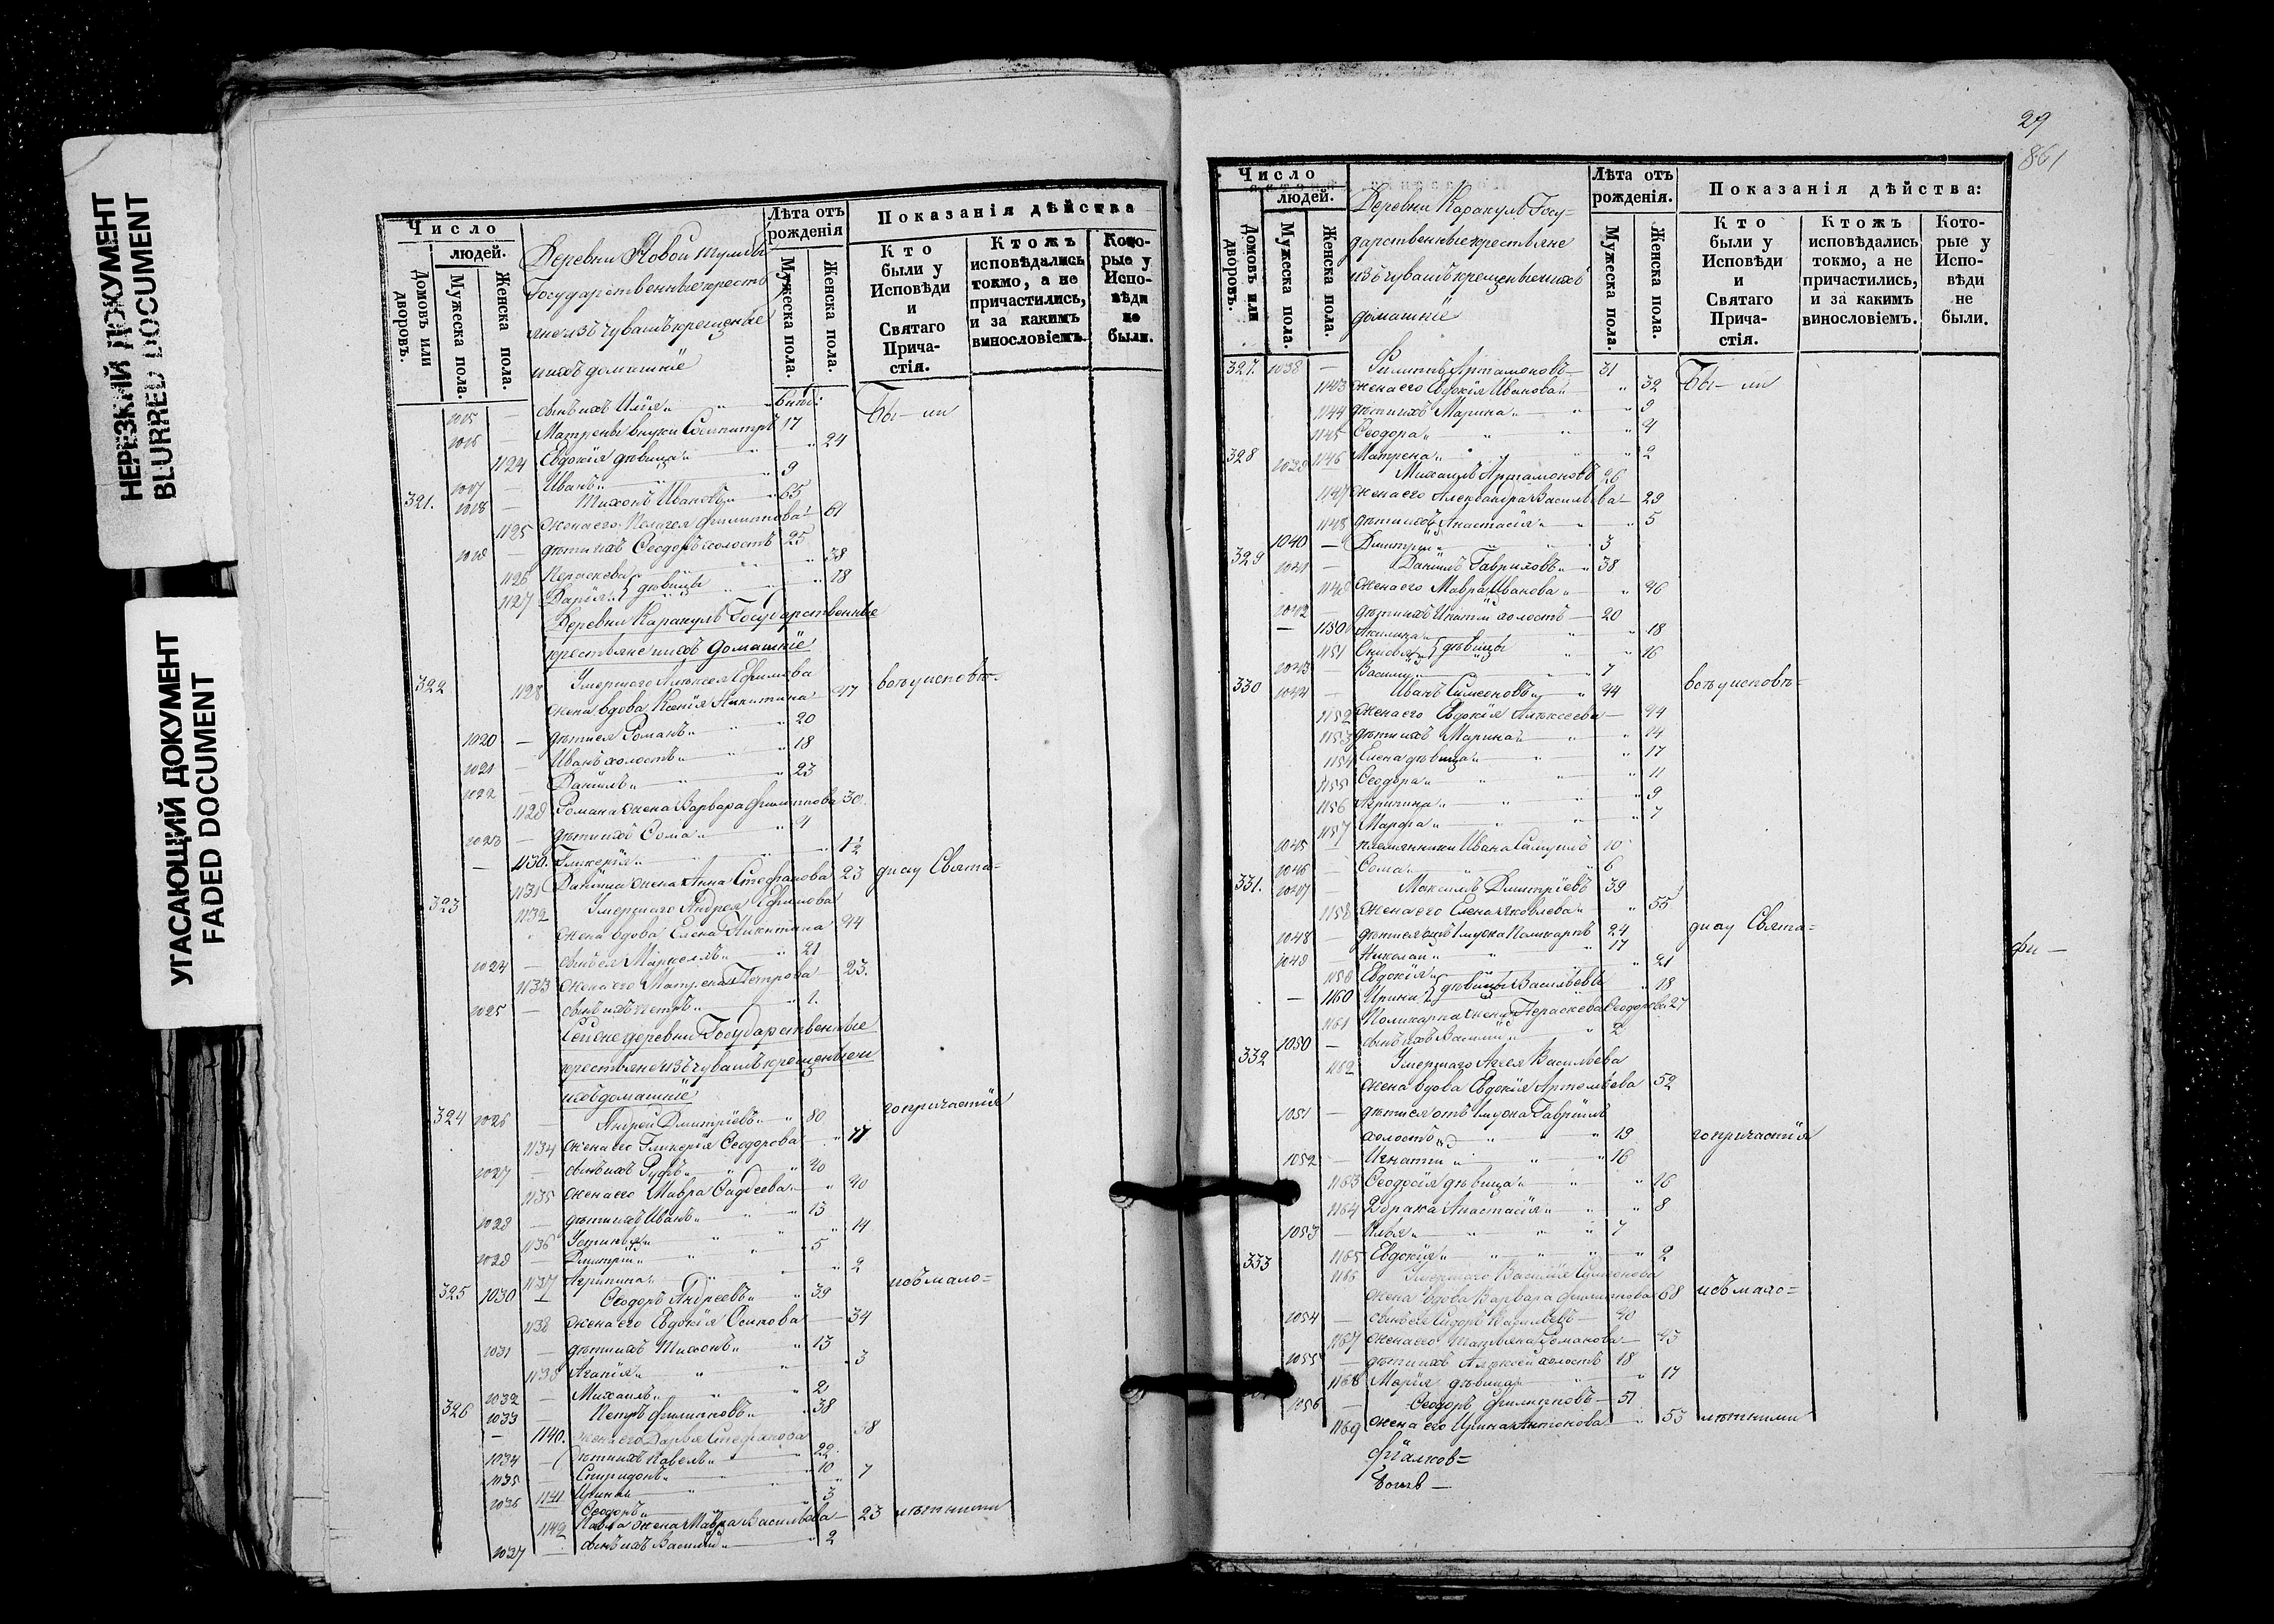 НЕРЕЗКИЙ ДОКУМЕНТ
BLURRED DOCUMENT
УГАСАЮЩИЙ ДОКУМЕНТ
FADED DOCUMENT
Число
людей.
Домовъ или дворовъ.
Мужеска пола.
Женска пола.
Деревни Новой
Государственные кресть
яне изъ чувашъ крещеные
ихъ домашніе
Лѣта отъ рожденія
Мужеска пола.
Женска пола.
Показанія дѣйства
Кто были у Исповѣди и Святаго Прича- стія.
Ктожъ исповѣдались токмо, а не причастились, и за какимъ винословіемъ.
Кото- рые у Испо- вѣди не были.
1015 — сынъ ихъ Илія Бы — ли
1016 — Матрены внуки 17
1124 Евдокія дѣвица 24
1017 — Иванъ 9
321. 1018 — Тихонъ Ивановъ 65
1125 жена его Пелагея Филиппова 61
1019 — дѣти ихъ Ѳеодоръ холостъ 25
1126 Параскева 38
1127 Дарія } дѣвицы 18
Деревни Каракулъ Государственные
крестьяне ихъ домашніе
322 1128 Умершаго Алексея Ефимова
жена вдова Ксенія Никитина 47 всѣ у исповѣ=
1020 — дѣти ея Романъ 20
1021 — Иванъ холостъ 18
1022 — Даніилъ 23
1129 Романа жена Варвара Филиппова 30.
1023 — дѣти ихъ Ѳома 4
— 1130. Гликерія 1½
1131 Даніила жена Анна Стефанова 23 ди и у Свята=
323 1132 Умершаго Андрея Ефимова
жена вдова Елена Никитина 44
1024 — сынъ ея Маркеллъ 21
1133 жена его Матрена Петрова 23.
1025 — сынъ ихъ Петръ 1.
Сей же деревни Государственные
крестьяне изъ чувашъ крещеные и
ихъ домашніе
324 1026 — Андрей Дмитріевъ 80 го причастія
1134 жена его Гликерія Ѳеодорова 77
1027 — сынъ ихъ 40
1135 жена его Мавра Фадеева 40
1028 — дѣти ихъ Иванъ 15
1136 Устинья 14
1029 — Дмитрій 5
1137 Агрипина 2
325 1030 — Ѳеодоръ Андреевъ 39 ихъ мало=
1138 жена его Евдокія Осипова 34
1031 — дѣти ихъ Тихонъ 13
1139 Агапія 3
1032 — Михаилъ 2
326 1033 — Петръ Филипповъ 38
— 1140. жена его Дарья Стефанова 38
1034 — дѣти ихъ Павелъ 22.
1035 — Спиридонъ 10
1141 Ирина 7
1036 Ѳеодоръ 3
1142 Павла жена Мавра Васильева 23 лѣтними
1037 — сынъ ихъ Василій 2
29
861
Число
людей.
Домовъ или дворовъ.
Мужеска пола.
Женска пола.
Деревни Каракулъ Госу=
дарственные крестьяне
изъ чувашъ крещеные ихъ
домашніе
Лѣта отъ рожденія.
Мужеска пола.
Женска пола.
Показанія дѣйства:
Кто были у Исповѣди и Святаго Прича- стія.
Ктожъ исповѣдались токмо, а не причастились, и за какимъ винословіемъ.
Кото- рые у Испо- вѣди не были.
327. 1038 — Филиппъ Артамоновъ 31
1143 жена его Евдокія Иванова 32 Бы — ли
1144 дѣти ихъ Марина 9
1145 Ѳеодора 4
1146 Матрена 2
328 1039 Михаилъ Артамоновъ 26
1147 жена его Александра Васильева 29
1148 дѣти ихъ Анастасія 5
1040 — Дмитрій 3
329 1041 — Даніилъ Гавриловъ 38
1149 жена его Мавра Иванова 46
1042 — дѣти ихъ холостъ 20
— 1150 18
1151 } дѣвицы 16
1043 Василій 7
330 1044 — Иванъ Симеоновъ 44 всѣ у исповѣ=
1152 жена его Евдокія Алексеева 44
1153 дѣти ихъ Марина 14
1154 Елена дѣвица 17
1155 Ѳеодора 11
1156 Агрипина 9
1157 Марфа 7
1045 — племянники Ивана 10
1046 — Ѳома 6
331. 1047 — Максимъ Дмитріевъ 39
1158 жена его Елена Яковлева 55
1048 — дѣти ея отъ 1 мужа Поликарпъ 24 ди и у Свята=
1049 — Николай 17
1159 Евдокія 21
— 1160 Ирина } дѣвицы Васильевы 18
1161 Поликарпа жена Параскева Ѳеодорова 27
1050 — сынъ ихъ Василій 2
332 1162 Умершаго Васильева
жена вдова Евдокія Артемьева 52
1051 — дѣти ея отъ 1 мужа Гавріилъ
холостъ 19 го причастія
1052 — Игнатій 16
1163 Ѳеодосія дѣвица 16
1164 2 брака Анастасія 8
1053 — Илья 7
1165 Евдокія 2
333 1166 Умершаго Василія Симеонова
жена вдова Варвара Филиппова 68 ихъ мало=
1054 — сынъ ея Васильевъ 40
1167 жена его Татьяна Романова 43
1055 — дѣти ихъ Алексей холостъ 18
1168 Марія дѣвица 17
1056 — Ѳеодоръ Филипповъ 51
1169 жена его Ирина Антонова 53 лѣтними
Фіалков=